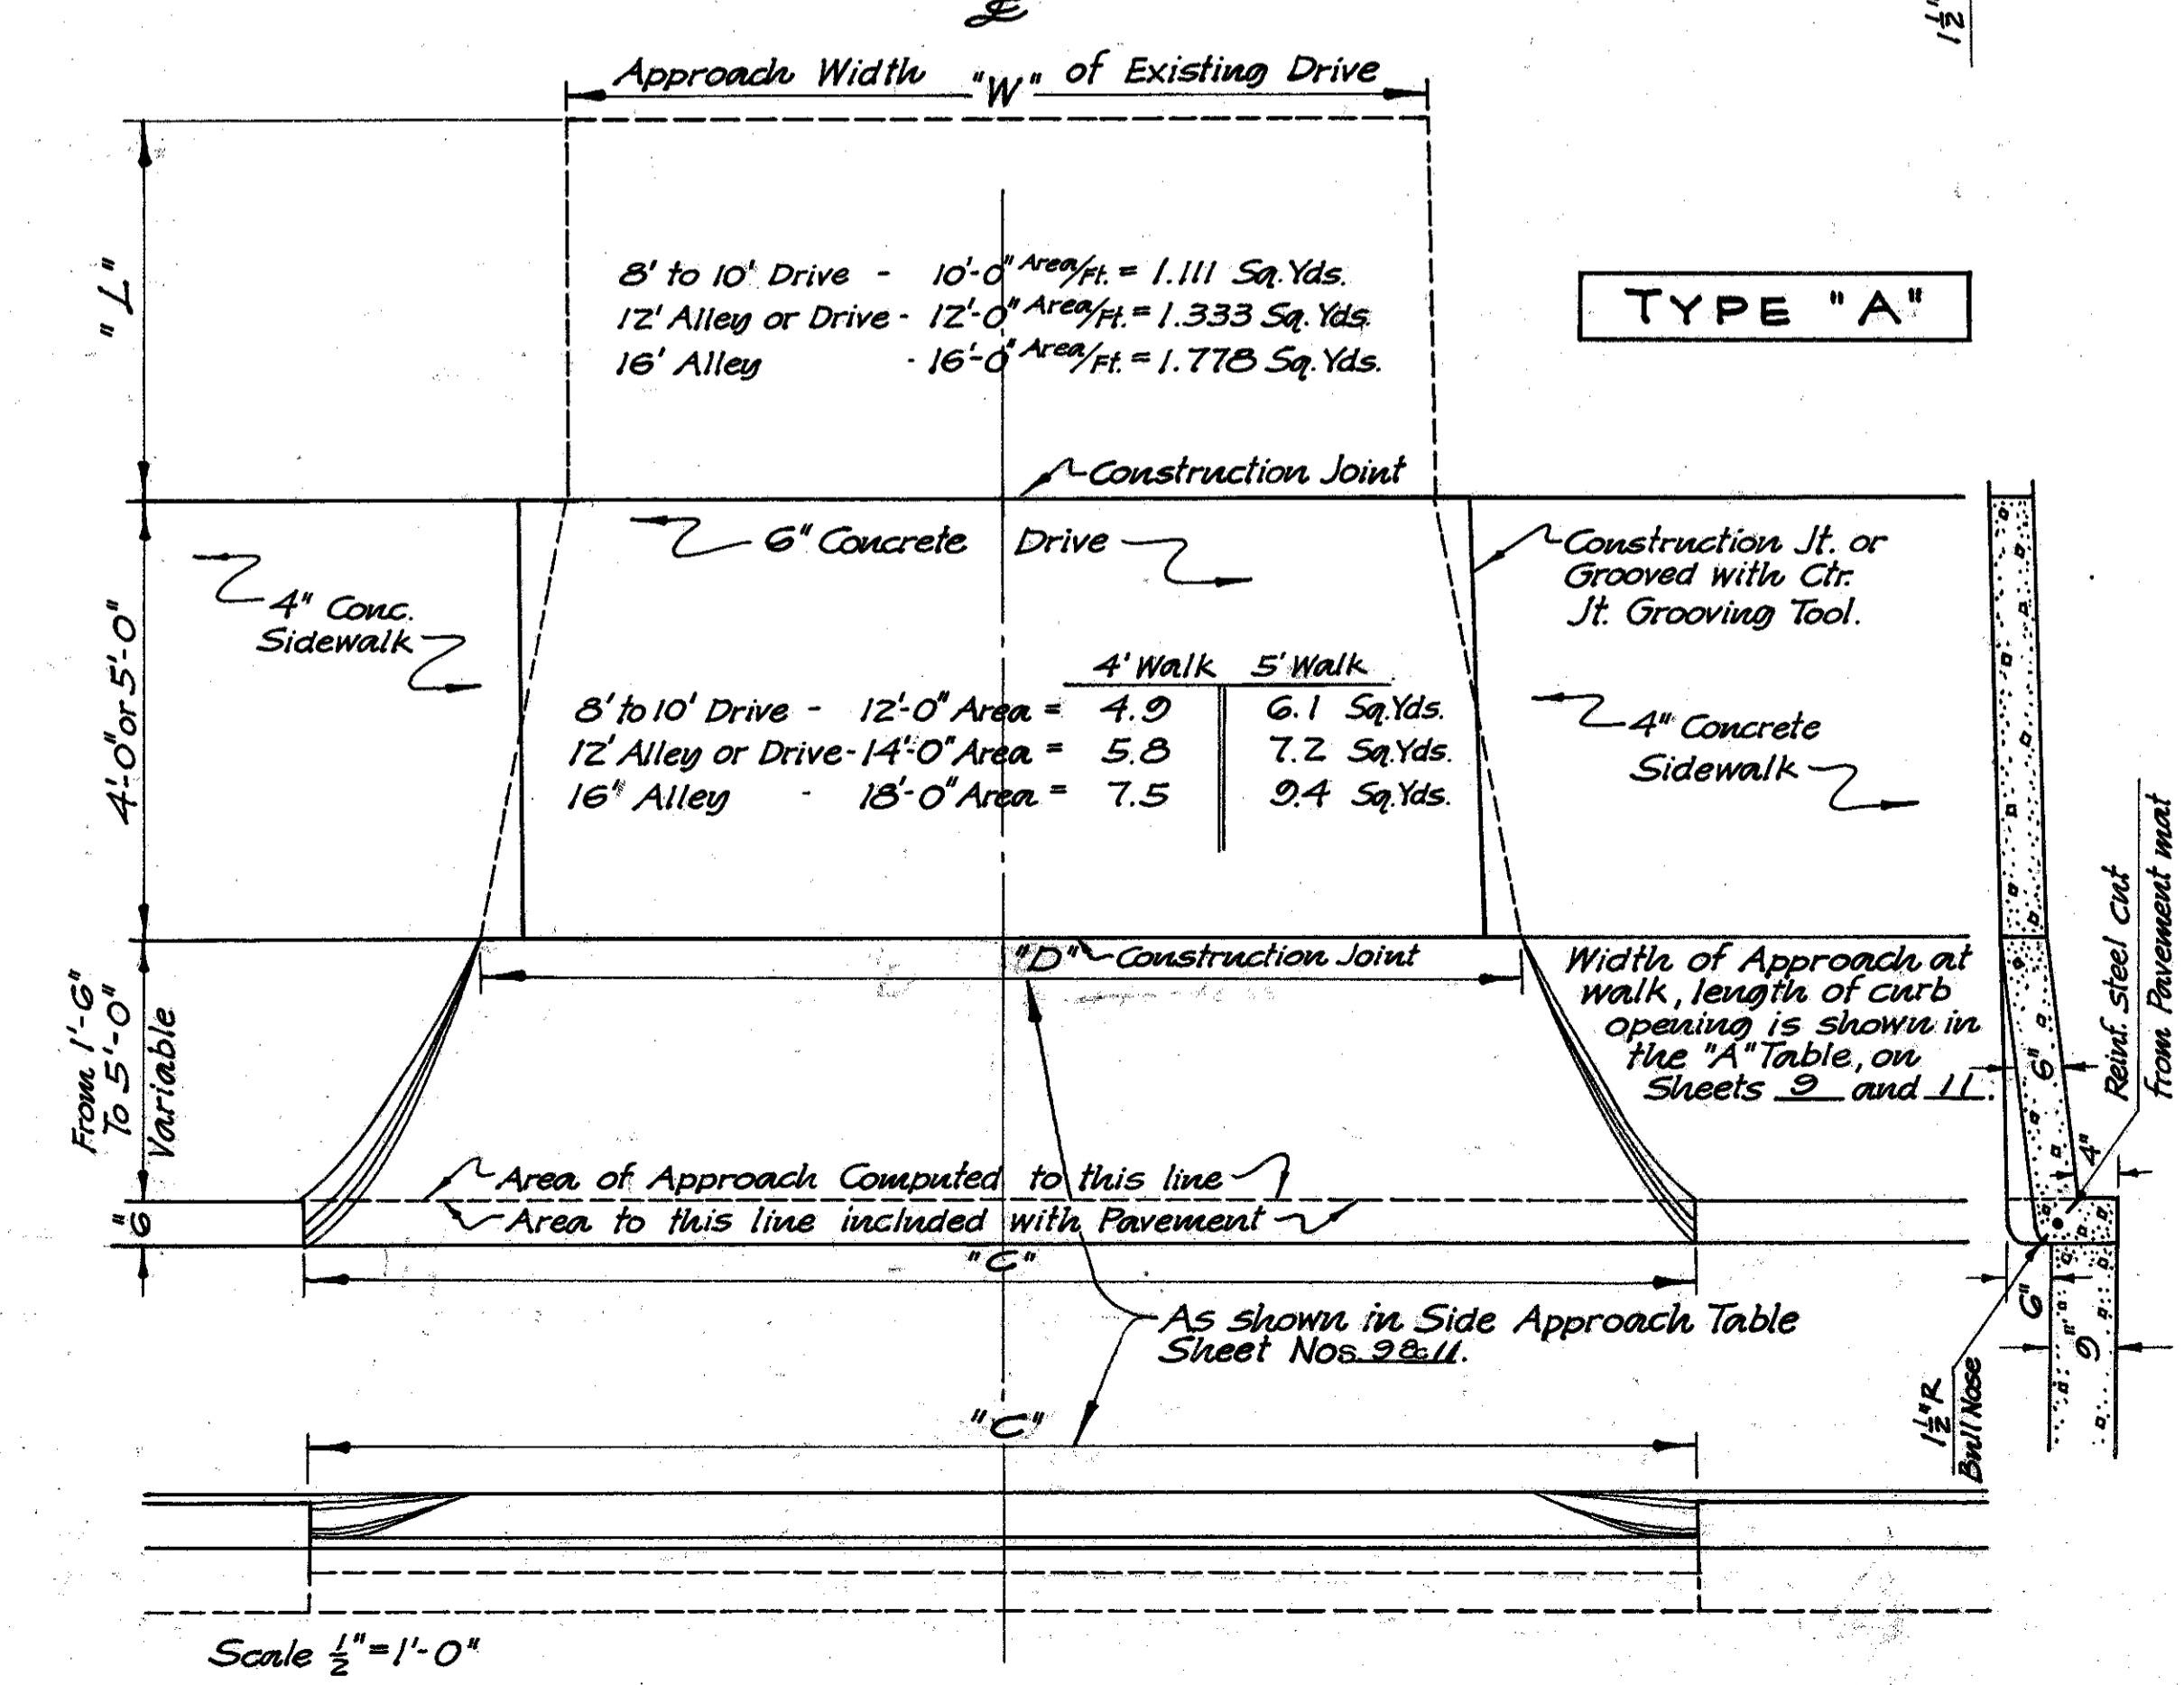 ℄
1½"
Approach Width "W" of Existing Drive
"L"
8' to 10' Drive - 10'-0" Area/Ft. = 1.111 Sq.Yds.
12' Alley or Drive - 12'-0" Area/Ft. = 1.333 Sq.Yds.
16' Alley - 16'-0" Area/Ft. = 1.778 Sq.Yds.
TYPE "A"
Construction Joint
6" Concrete Drive
4" Conc.
Sidewalk
Construction Jt. or
Grooved with Ctr.
Jt. Grooving Tool.
4'-0" or 5'-0"
4' Walk 5' Walk
8' to 10' Drive - 12'-0" Area = 4.9 6.1 Sq.Yds.
12' Alley or Drive - 14'-0" Area = 5.8 7.2 Sq.Yds.
16' Alley - 18'-0" Area = 7.5 9.4 Sq.Yds.
4" Concrete
Sidewalk
"D" Construction Joint
Width of Approach at
walk, length of curb
opening is shown in
the "A" Table, on
Sheets 9 and 11.
From 1'-6"
To 5'-0"
Variable
Reinf. steel cut
from Pavement mat
6"
4"
Area of Approach Computed to this line
Area to this line included with Pavement
6"
"C"
As shown in Side Approach Table
Sheet Nos. 9 & 11.
6"
9"
1½" R
Bull Nose
"C"
Scale ½" = 1'-0"